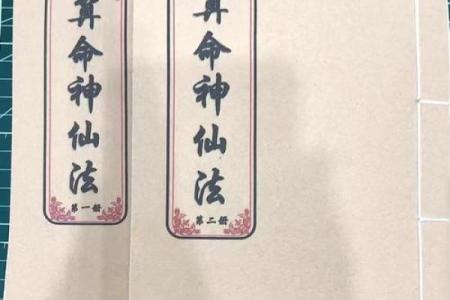 算命神仙法
第一册
算命神仙法
第二册